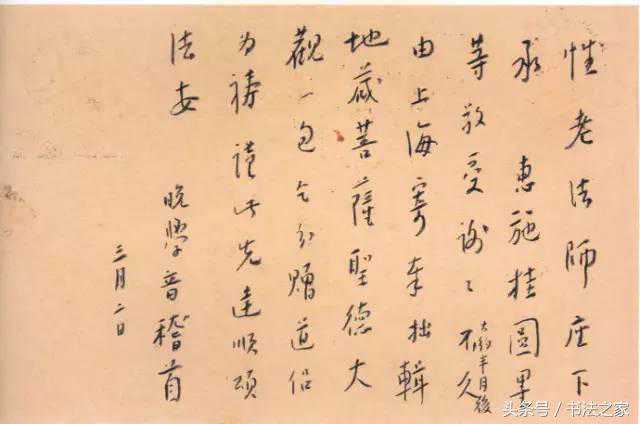 性老法師座下
承 惠施桂圓果
等敬受謝々不久
大約半月後
由上海寄奉拙輯
地藏菩薩聖德大
觀一包乞分贈道侶
為禱謹此先達順頌
法安
晚學音稽首
三月二日
头条号/书法之家